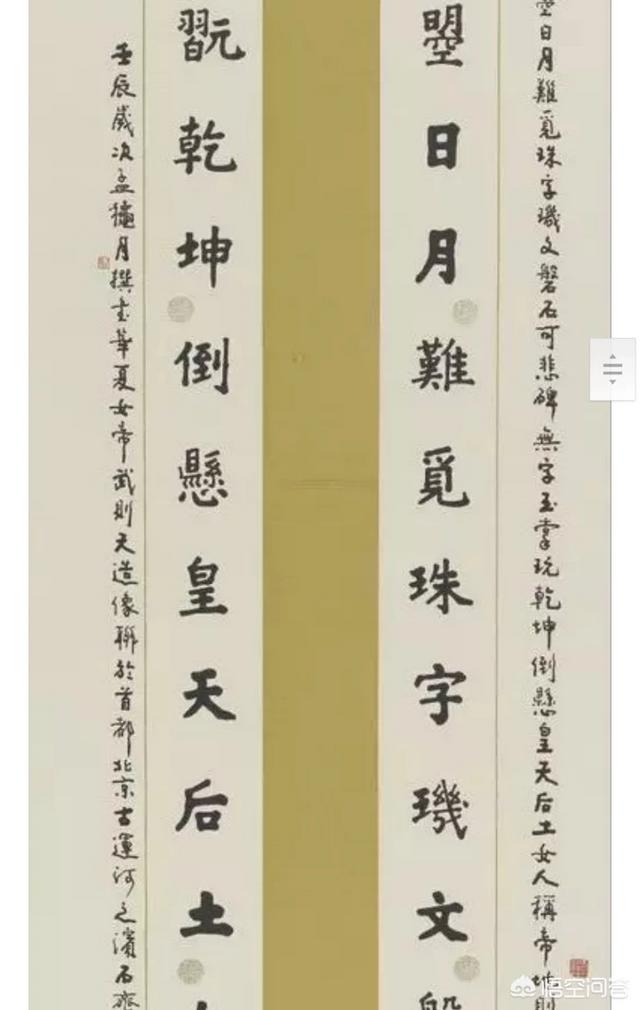 曌日月難覓珠字璣文磐石可悲碑無字玉掌玩乾坤倒懸皇天后土女人稱帝
曌日月難覓珠字璣文
翫乾坤倒懸皇天后土
壬辰歲次孟龝月撰書華夏女帝武則天造像聯於首都北京古運河之濱石齋
悟空问答